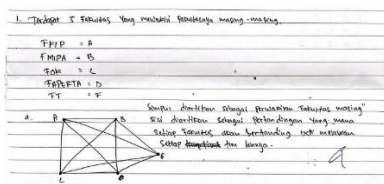 1. Terdapat 5 Fakultas yang mewakili Fakultasnya masing-masing.
FKIP = A
FMIPA = B
FOK = C
FAPERTA = D
FT = F
Simpul diartikan sebagai perwakilan Fakultas masing"
Sisi diartikan sebagai Pertandingan yang mana
Setiap Fakultas akan bertanding melawan
Setiap tim lainnya.
a.
A B
E
C D